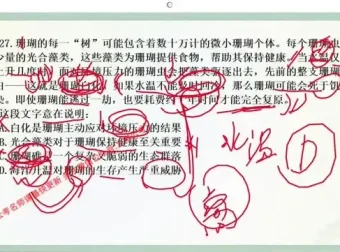 27.珊瑚的每一“树”可能包含着数十万计的微小珊瑚个体。每个珊瑚虫
量的光合藻类，这些藻类为珊瑚提供食物，帮助其保持健康。当水温仅
上升几度时，面对环境压力的珊瑚虫会把藻类驱逐出去，先前的整支珊瑚
白——这就是珊瑚白化。如果水温不能及时回落，那么珊瑚可能会死于饥
。即使珊瑚能逃过一劫，也要耗费约一年时间才能完全复原。
这段文字意在说明：
A.白化是珊瑚主动应对环境压力的结果
B.光合藻类对于珊瑚保持健康至关重要
C.珊瑚礁是一个复杂又脆弱的生态群落
D.海洋升温对珊瑚的生存产生严重威胁
水温
D